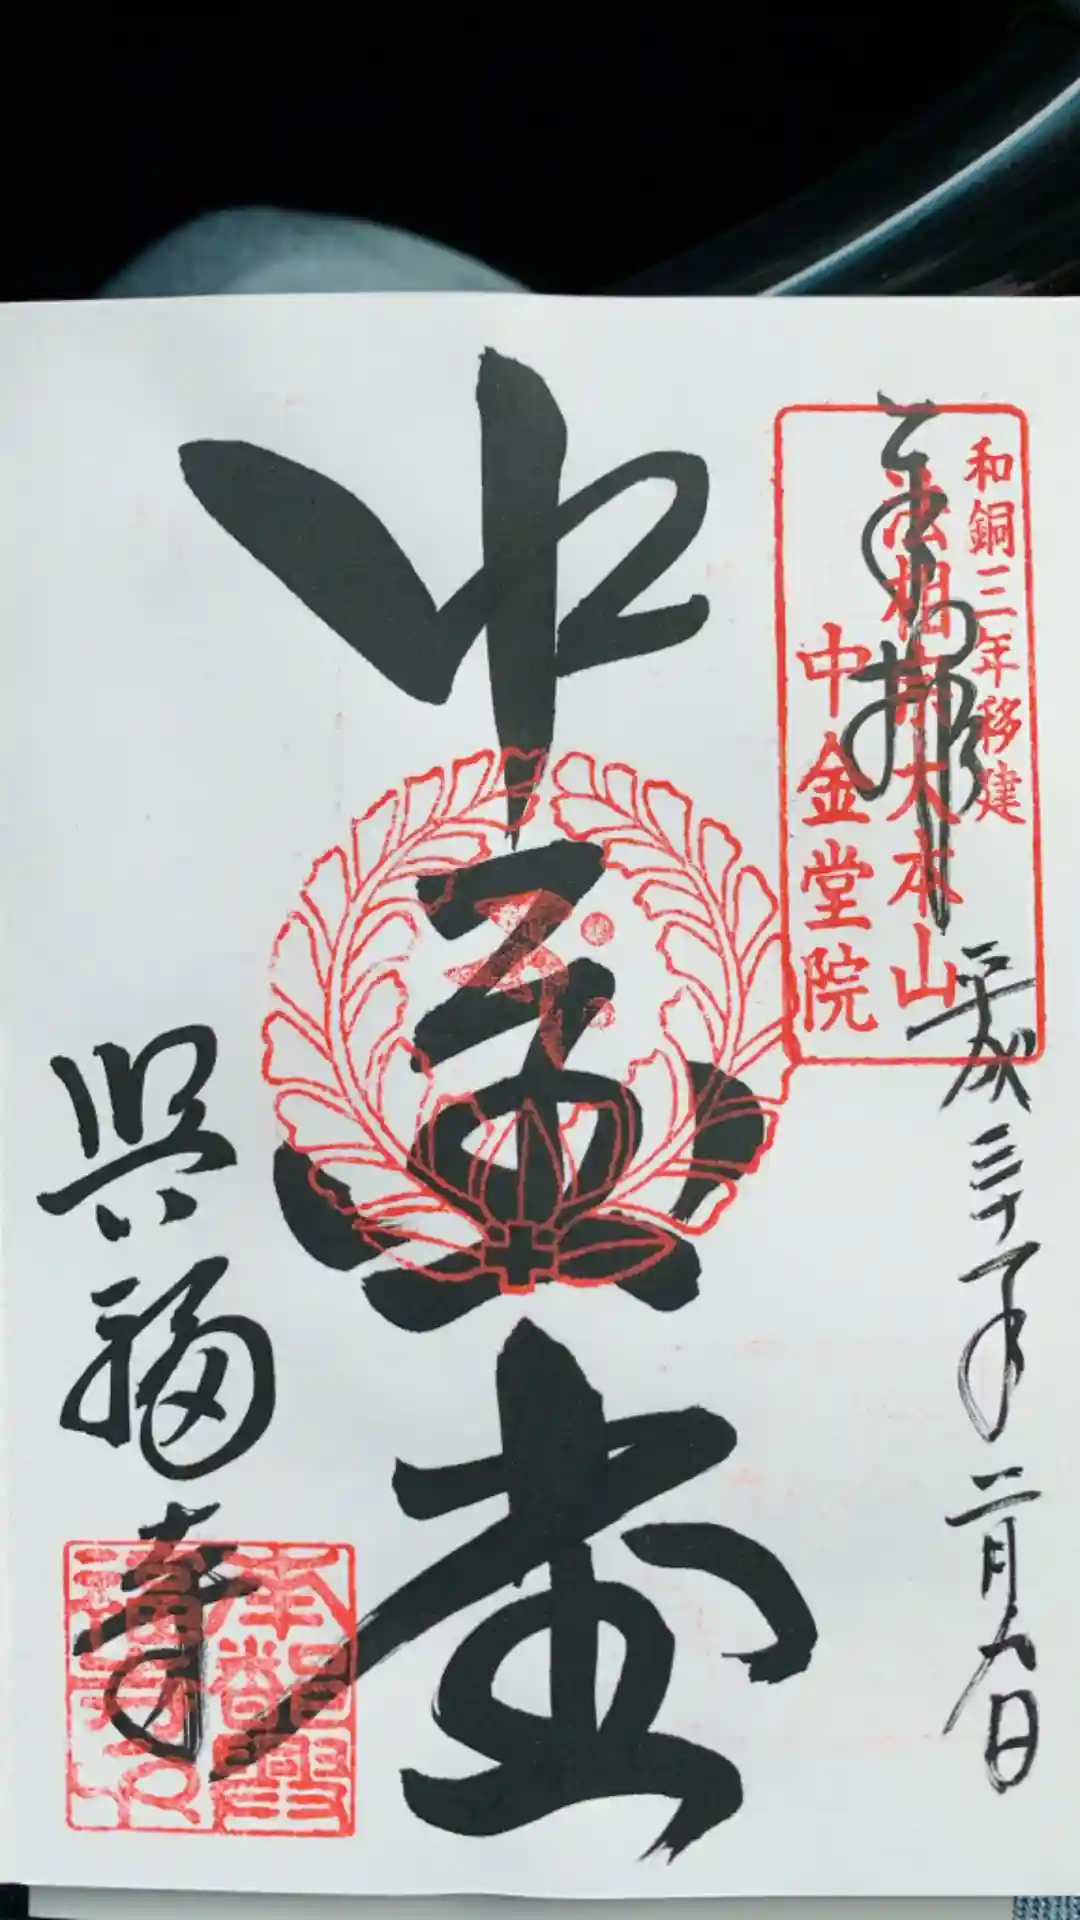 奉拝
和銅三年移建
法相宗大本山
中金堂院
平成三十年二月六日
中金堂
興福寺
南都興
福寺印